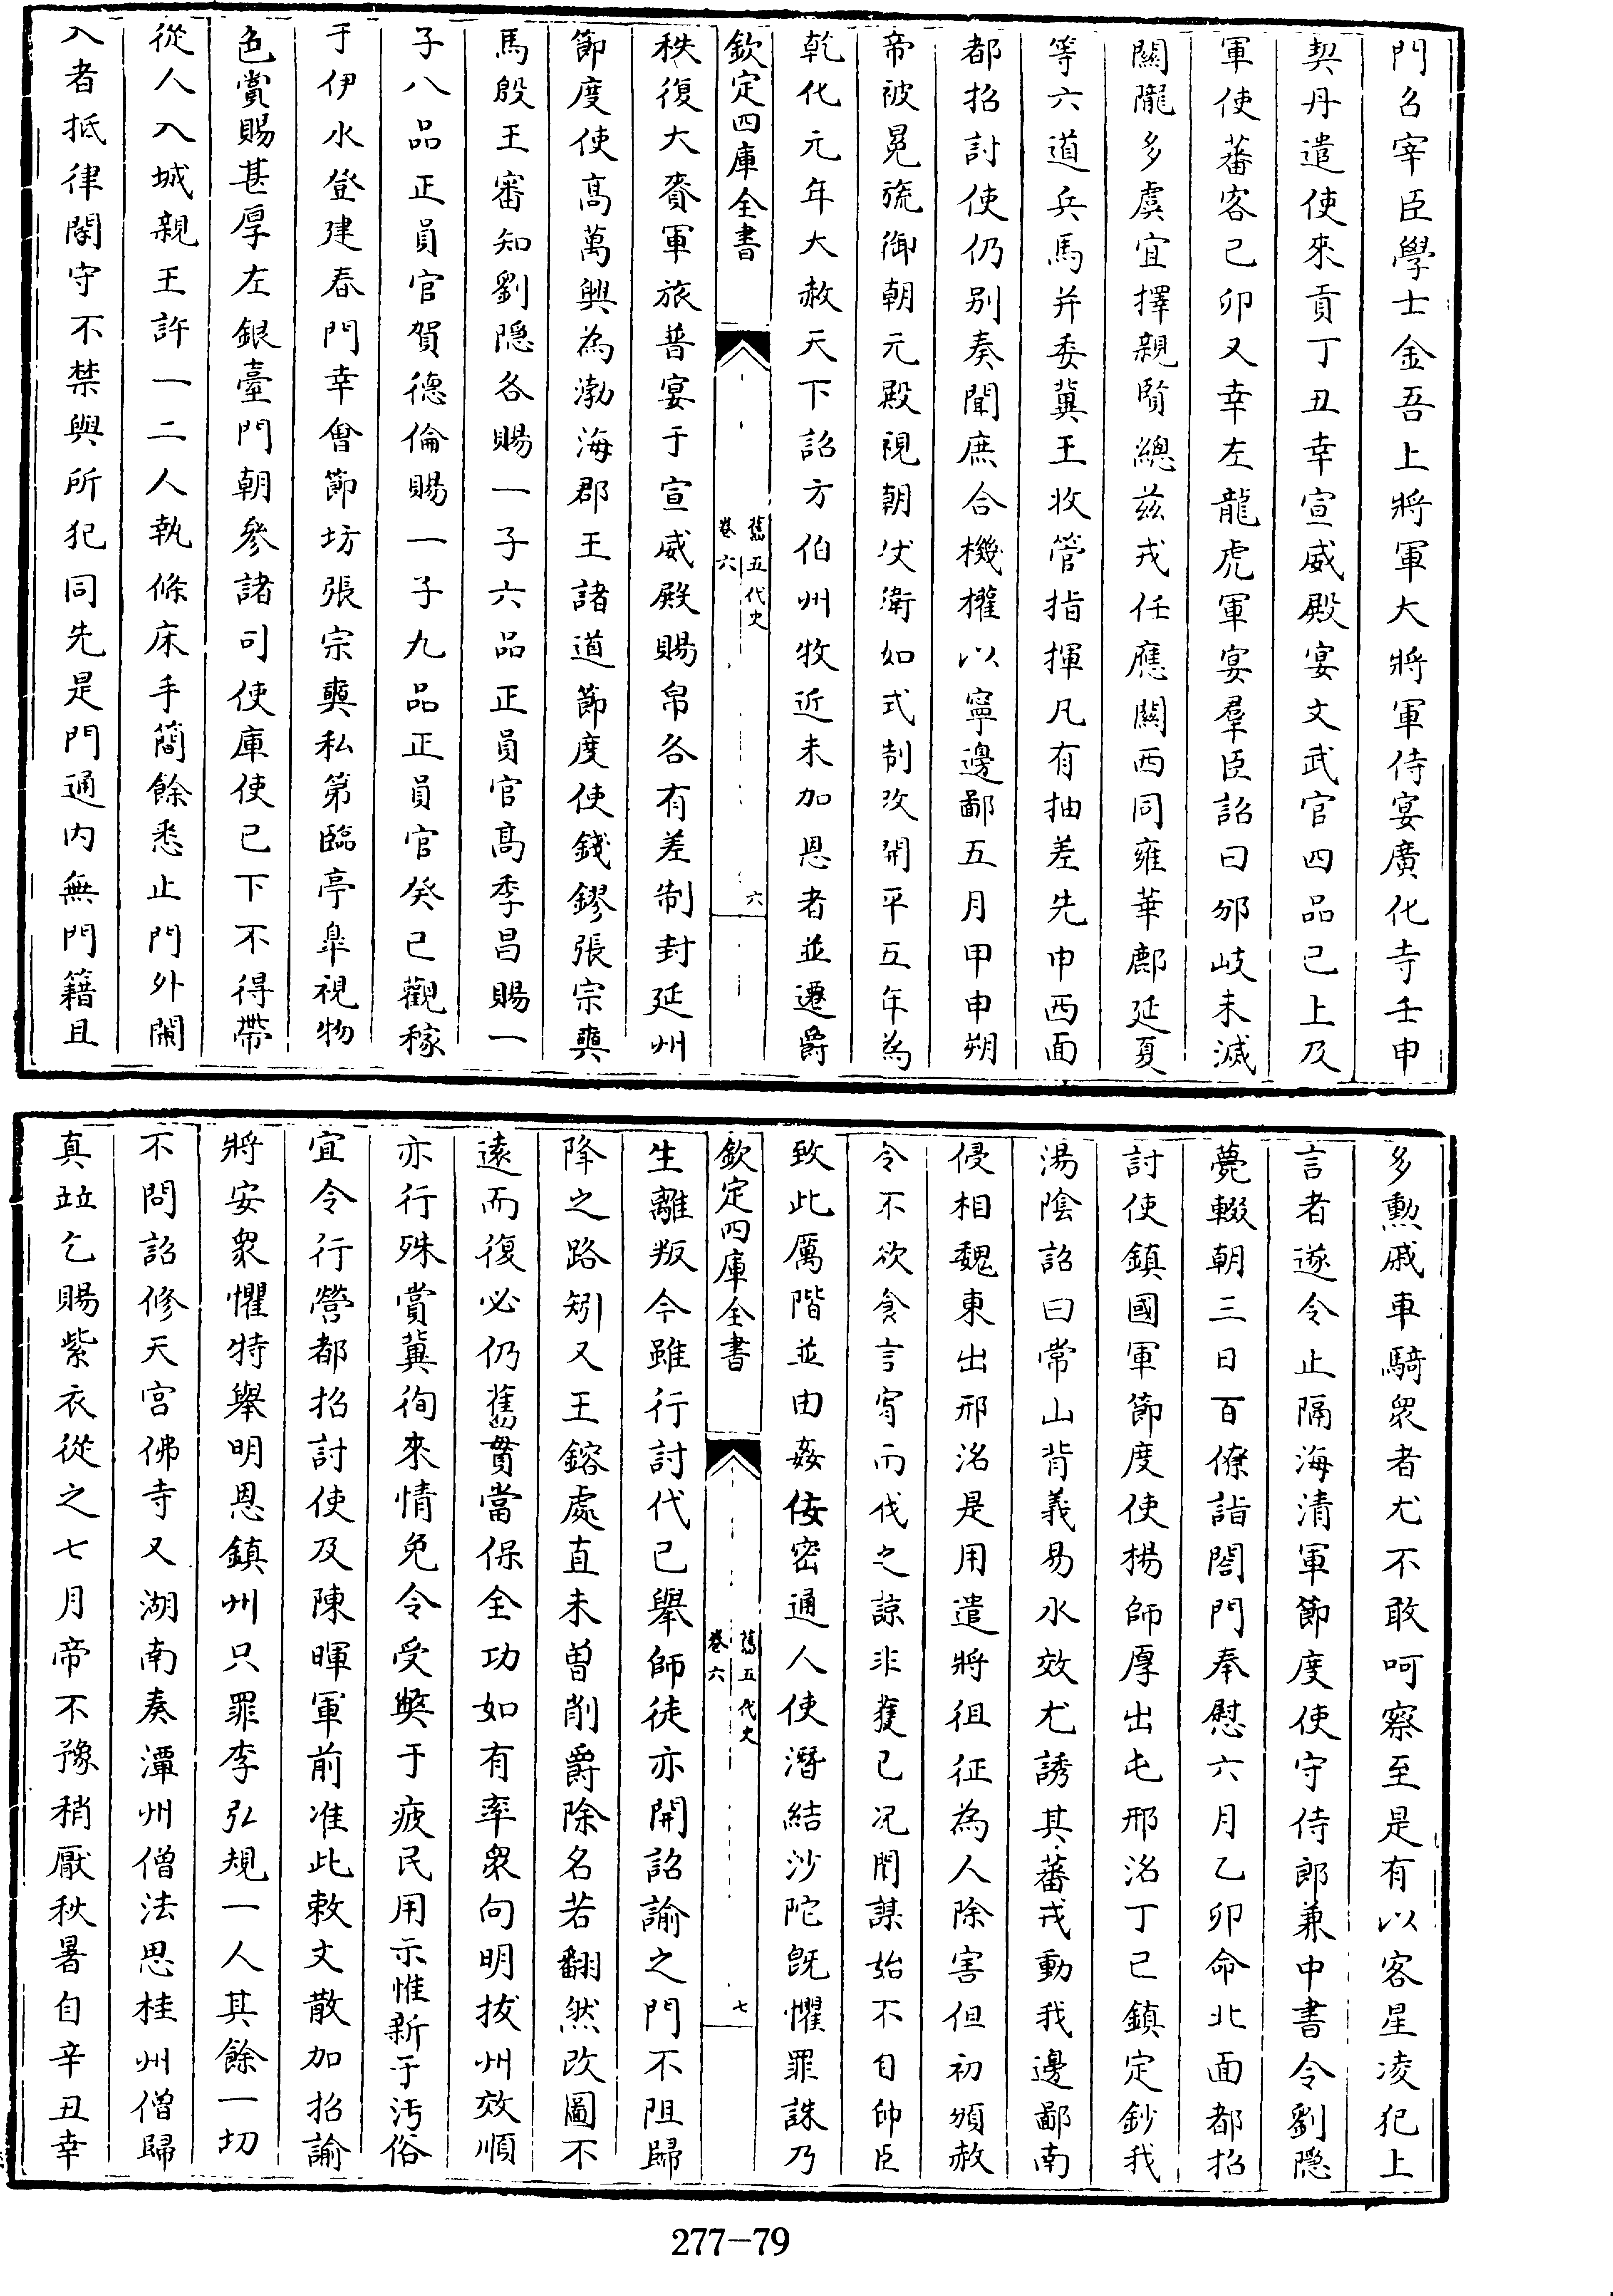 門召宰臣學士金吾上將軍大將軍侍宴廣化寺壬申
契丹遣使來貢丁丑幸宣威殿宴文武官四品已上及
軍使蕃客己卯又幸左龍虎軍宴羣臣詔曰邠岐未滅
關隴多虞宜擇親賢總兹戎任應關西同雍華鄜延夏
等六道兵馬并委冀王收管指揮凡有抽差先申西面
都招討使仍别奏聞庶合機權以寧邊鄙五月甲申朔
帝被冕旒御朝元殿視朝仗衛如式制改開平五年為
乾化元年大赦天下詔方伯州牧近未加恩者並遷爵
欽定四庫全書
舊五代史
卷六
六
秩復大賚軍旅普宴于宣威殿賜帛各有差制封延州
節度使高萬興為渤海郡王諸道節度使錢鏐張宗奭
馬殷王審知劉隐各賜一子六品正員官高季昌賜一
子八品正員官賀德倫賜一子九品正員官癸已觀稼
于伊水登建春門幸會節坊張宗奭私第臨亭臯視物
色賞賜甚厚左銀臺門朝參諸司使庫使已下不得帶
從人入城親王許一二人執條床手簡餘悉止門外闌
入者抵律閽守不禁與所犯同先是門通内無門籍且
多勲戚車騎衆者尤不敢呵察至是有以客星凌犯上
言者遂令止隔海清軍節度使守侍郎兼中書令劉隐
薨輟朝三日百僚詣閤門奉慰六月乙卯命北面都招
討使鎮國軍節度使楊師厚出屯邢洺丁已鎮定鈔我
湯陰詔曰常山背義易水效尤誘其蕃戎動我邊鄙南
侵相魏東出邢洺是用遣將徂征為人除害但初頒赦
令不欲食言宥而伐之諒非獲已况聞謀始不自帥臣
致此厲階並由姦佞密通人使潛結沙陀既懼罪誅乃
欽定四庫全書
舊五代史
卷六
七
生離叛今雖行討代已舉師徒亦開詔諭之門不阻歸
降之路矧又王鎔處直未曽削爵除名若翻然改圖不
遠而復必仍舊貫當保全功如有率衆向明拔州效順
亦行殊賞冀徇來情免令受弊于疲民用示惟新于汚俗
宜令行營都招討使及陳暉軍前准此敕文散加招諭
將安衆懼特舉明恩鎮州只罪李弘規一人其餘一切
不問詔修天宫佛寺又湖南奏潭州僧法思桂州僧歸
真竝乞賜紫衣從之七月帝不豫稍厭秋暑自辛丑幸
277—79